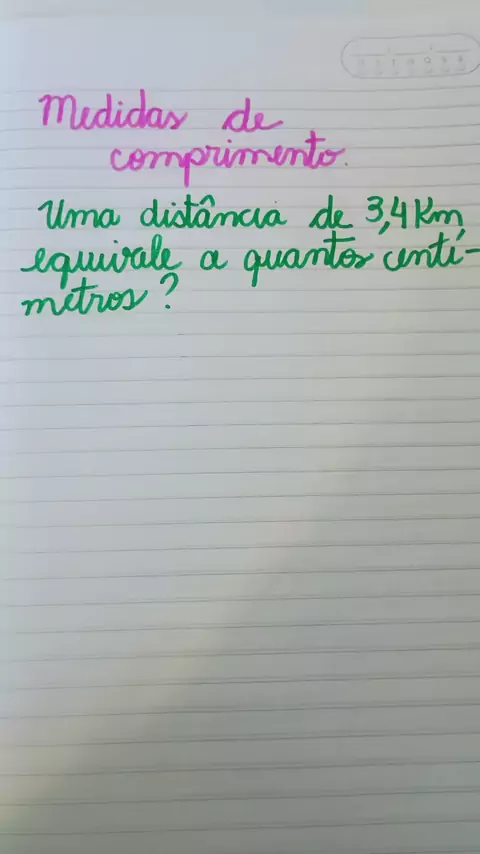 Medidas de
comprimento.
Uma distância de 3,4 Km
equivale a quantos centí-
metros?